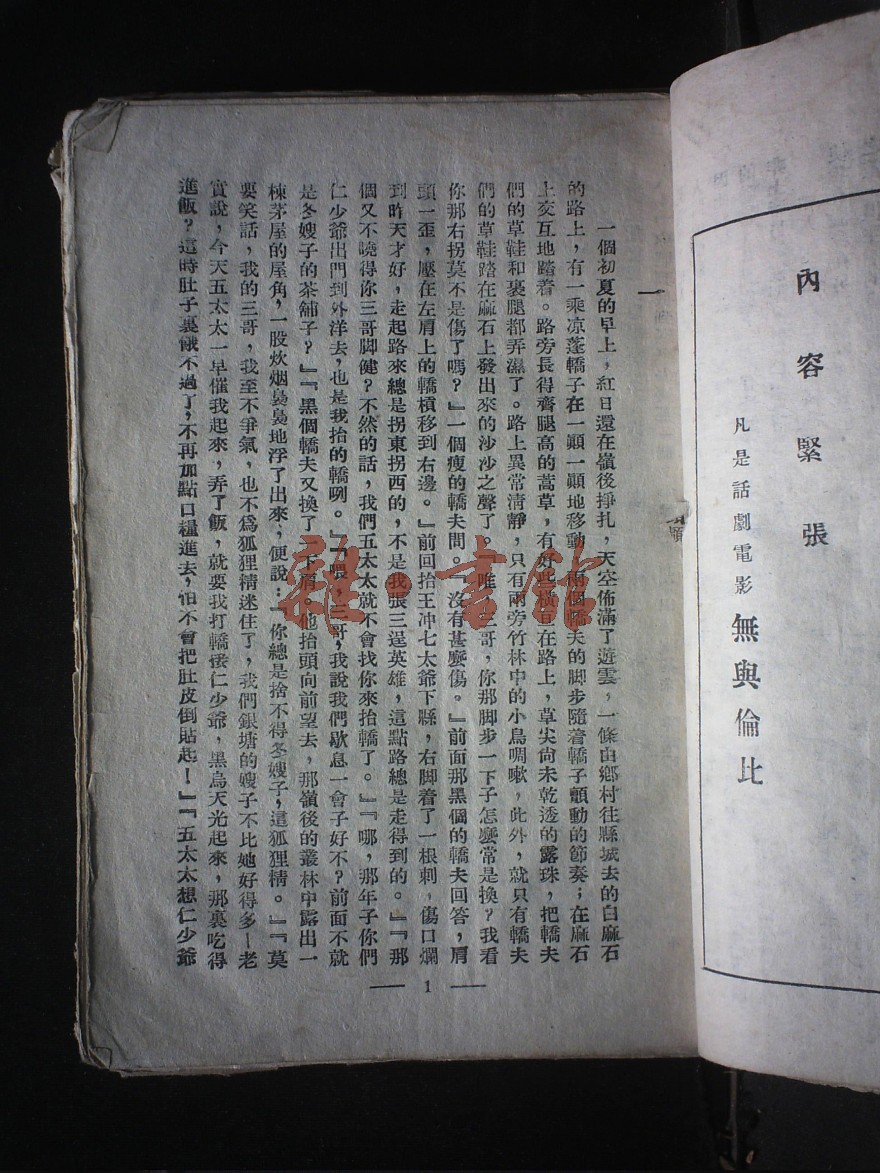 內容緊張
凡是話劇電影無與倫比
一
一個初夏的早上，紅日還在嶺後掙扎，天空佈滿了遊雲，一條由鄉村往縣城去的白麻石
的路上，有一乘凉蓬轎子在一顚一顚地移動，兩個轎夫的脚步隨着轎子顫動的節奏；在麻石
上交互地踏着。路旁長得齊腿高的蒿草，有好些橫亘在路上，草尖尙未乾透的露珠，把轎夫
們的草鞋和裹腿都弄濕了。路上異常清靜，只有兩旁竹林中的小鳥啁嗽，此外，就只有轎夫
們的草鞋踏在麻石上發出來的沙沙之聲了。『唯，三哥，你那脚步一下子怎麼常是換？我看
你那右拐莫不是傷了嗎？』一個瘦的轎夫問。『沒有甚麼傷。』前面那黑個的轎夫回答，肩
頭一歪，壓在左肩上的轎槓移到右邊。『前回抬王冲七太爺下縣，右脚着了一根刺，傷口爛
到昨天才好，走起路來總是拐東拐西的，不是我張三逞英雄，這點路總是走得到的。』『那
個又不曉得你三哥脚健？不然的話，我們五太太就不會找你來抬轎了。』『哪，那年子你們
仁少爺出門到外洋去，也是我抬的轎咧。』『喂，三哥，我說我們歇息一會子好不？前面不就
是冬嫂子的茶舖子？』『黑個轎夫又換了一下肩。他抬頭向前望去，那嶺後的叢林中露出一
棟茅屋的屋角，一股炊烟裊裊地浮了出來，便說：『你總是捨不得冬嫂子，這狐狸精。』『莫
要笑話，我的三哥，我至不爭氣，也不爲狐狸精迷住了，我們銀塘的嫂子不比她好得多—老
實說，今天五太太一早催我起來，弄了飯，就要我打轎接仁少爺，黑烏天光起來，那裏吃得
進飯？這時肚子裏餓不過了，不再加點口糧進去，怕不會把肚皮倒貼起！』『五太太想仁少爺
1
雜·書館